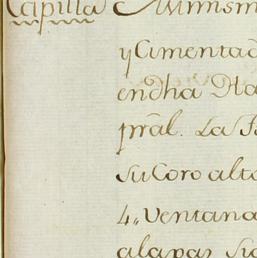 Capilla Mismism
y Cimentad
en dha Ha
prâl. La F
su Coro alto
4,, Ventana
alapar Su